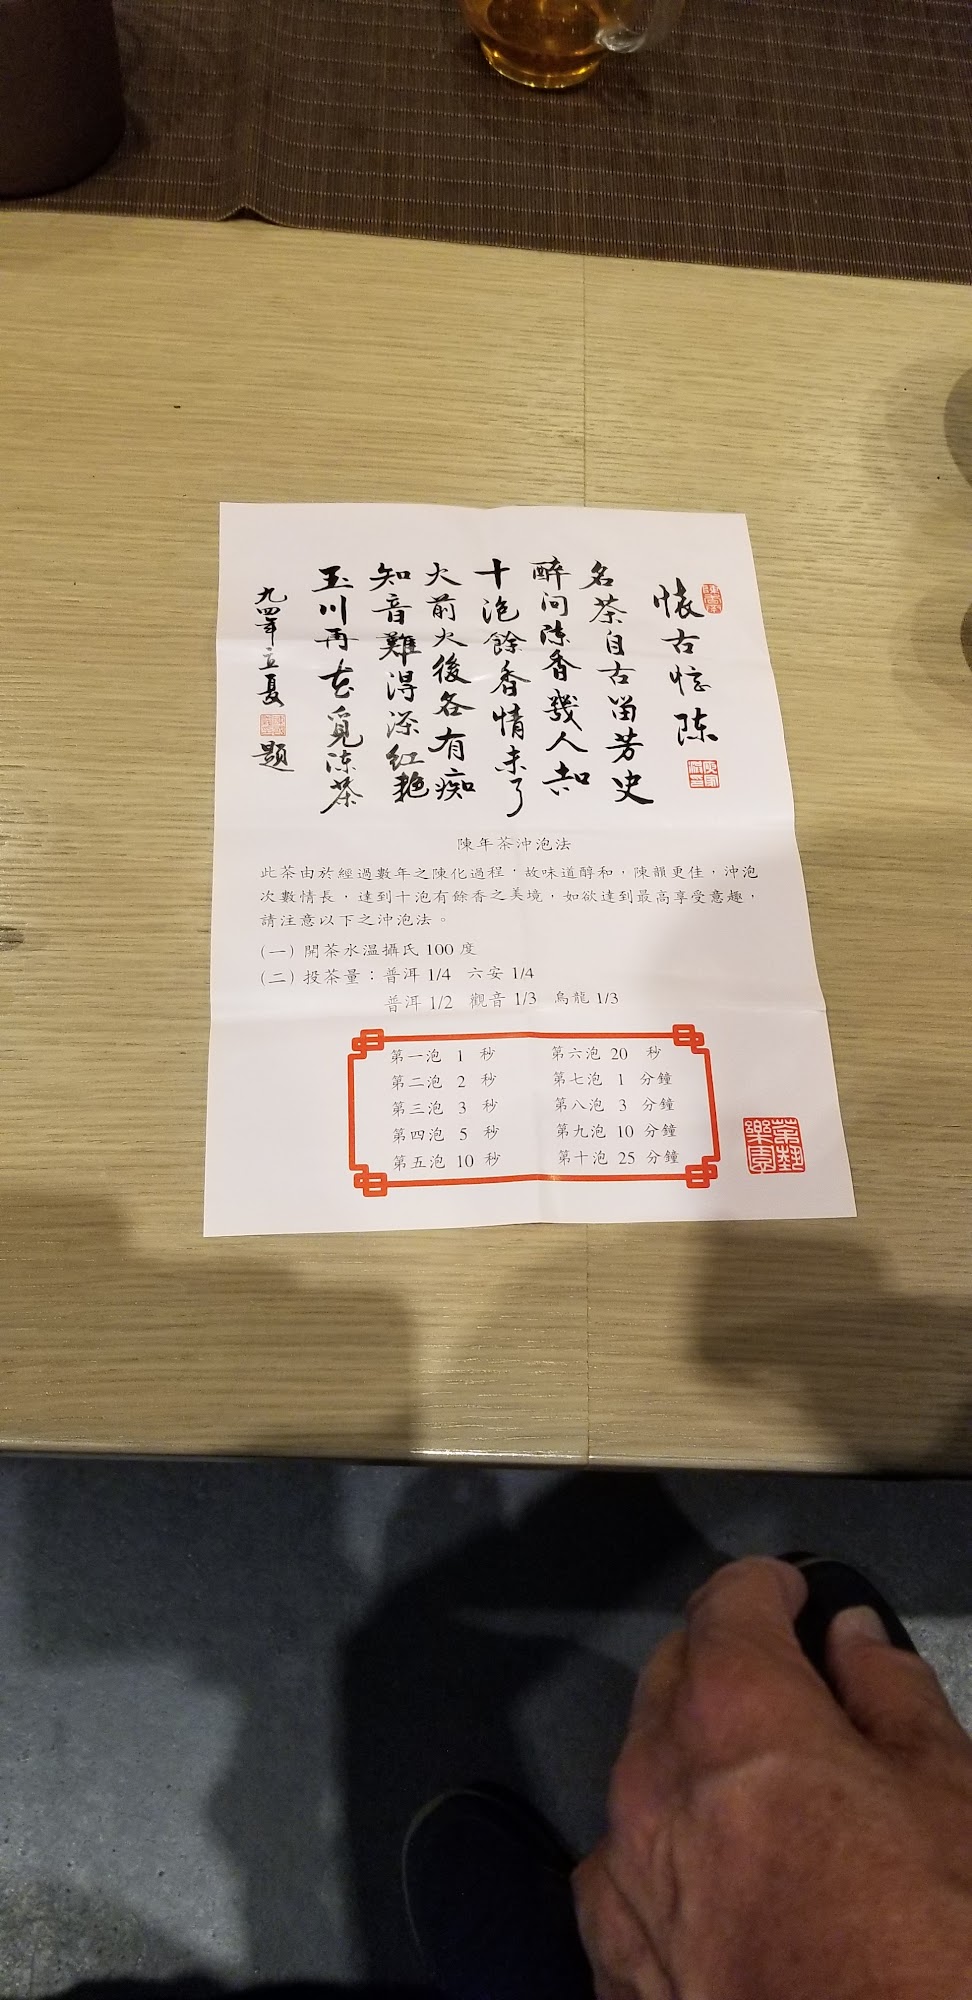 懷古憶陳
名茶自古留芳史
醉問陳香幾人知
十泡餘香情未了
火前火後各有痴
知音難得深紅艷
玉川再世覓陳茶
九四年立夏
題
陳年茶沖泡法
此茶由於經過數年之陳化過程，故味道醇和，陳韻更佳，沖泡
次數情長，達到十泡有餘香之美境，如欲達到最高享受意趣，
請注意以下之沖泡法。
(一) 開茶水溫攝氏 100 度
(二) 投茶量：普洱 1/4 六安 1/4
普洱 1/2 觀音 1/3 烏龍 1/3
第一泡 1 秒 第六泡 20 秒
第二泡 2 秒 第七泡 1 分鐘
第三泡 3 秒 第八泡 3 分鐘
第四泡 5 秒 第九泡 10 分鐘
第五泡 10 秒 第十泡 25 分鐘
茶藝樂園